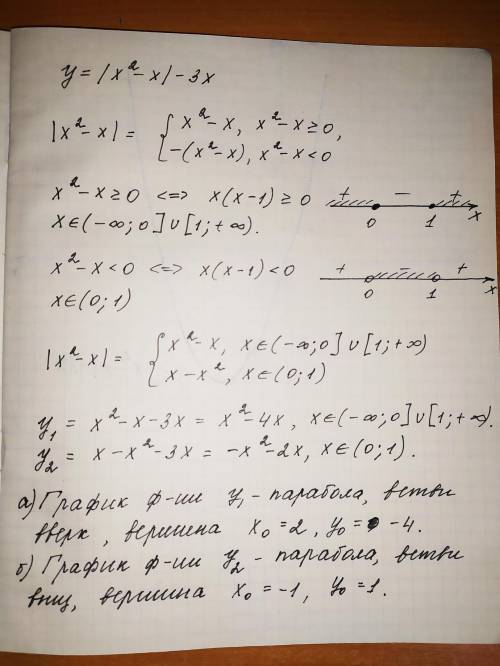 y = |x² - x| - 3x
|x² - x| = { x² - x, x² - x ≥ 0,
-(x² - x), x² - x < 0
x² - x ≥ 0 <=> x(x-1) ≥ 0 + - + 0 1 x
x ∈ (-∞; 0] ∪ [1; +∞).
x² - x < 0 <=> x(x-1) < 0 + - + 0 1 x
x ∈ (0; 1)
|x² - x| = { x² - x, x ∈ (-∞; 0] ∪ [1; +∞)
x - x², x ∈ (0; 1)
y₁ = x² - x - 3x = x² - 4x, x ∈ (-∞; 0] ∪ [1; +∞).
y₂ = x - x² - 3x = -x² - 2x, x ∈ (0; 1).
а) График ф-ии y₁ - парабола, ветви
вверх, вершина x₀ = 2, y₀ = -4.
б) График ф-ии y₂ - парабола, ветви
вниз, вершина x₀ = -1, y₀ = 1.